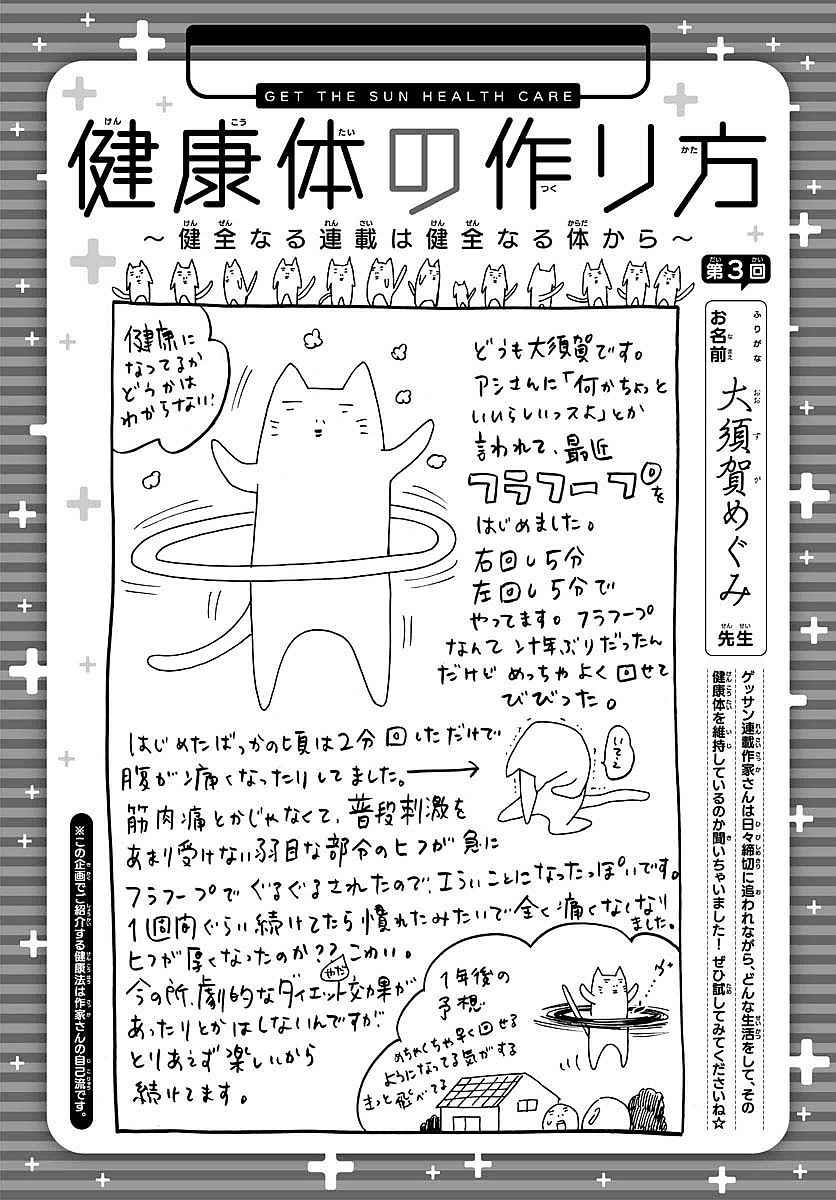 GET THE SUN HEALTH CARE
健康体の作り方
～健全なる連載は健全なる体から～
第3回
ふりがな
お名前
大須賀めぐみ
先生
ゲッサン連載作家さんは日々締切に追われながら、どんな生活をして、その
健康体を維持しているのか聞いちゃいました！ぜひ試してみてくださいね☆
健康に
なってるか
どうかは
わからない！
どうも大須賀です。
アシさんに「何かちょっと
いいらしいっスよ」とか
言われて、最近
フラフープを
はじめました。
右回し5分
左回し5分で
やってます。フラフープ
なんて 十年ぶりだったん
だけど めっちゃ よく 回せて
びびった。
はじめたばっかの頃は2分 回しただけで
腹が痛くなったりしてました。
いてぇ
筋肉痛とかじゃなくて、普段刺激を
あまり受けない弱目な部分のヒフが急に
フラフープでぐるぐるされたので、エらいことになったっぽいです。
1週間ぐらい続けてたら慣れたみたいで全く痛くなくなり
ました。
ヒフが厚くなったのか？？こわい。
やだ
今の所、劇的なダイエット効果が
あったりとかはしないんですが
とりあえず楽しいから
続けてます。
1年後の
予想
めちゃくちゃ早く回せる
ようになってる気がする
きっと飛べてる
※この企画でご紹介する健康法は作家さんの自己流です。